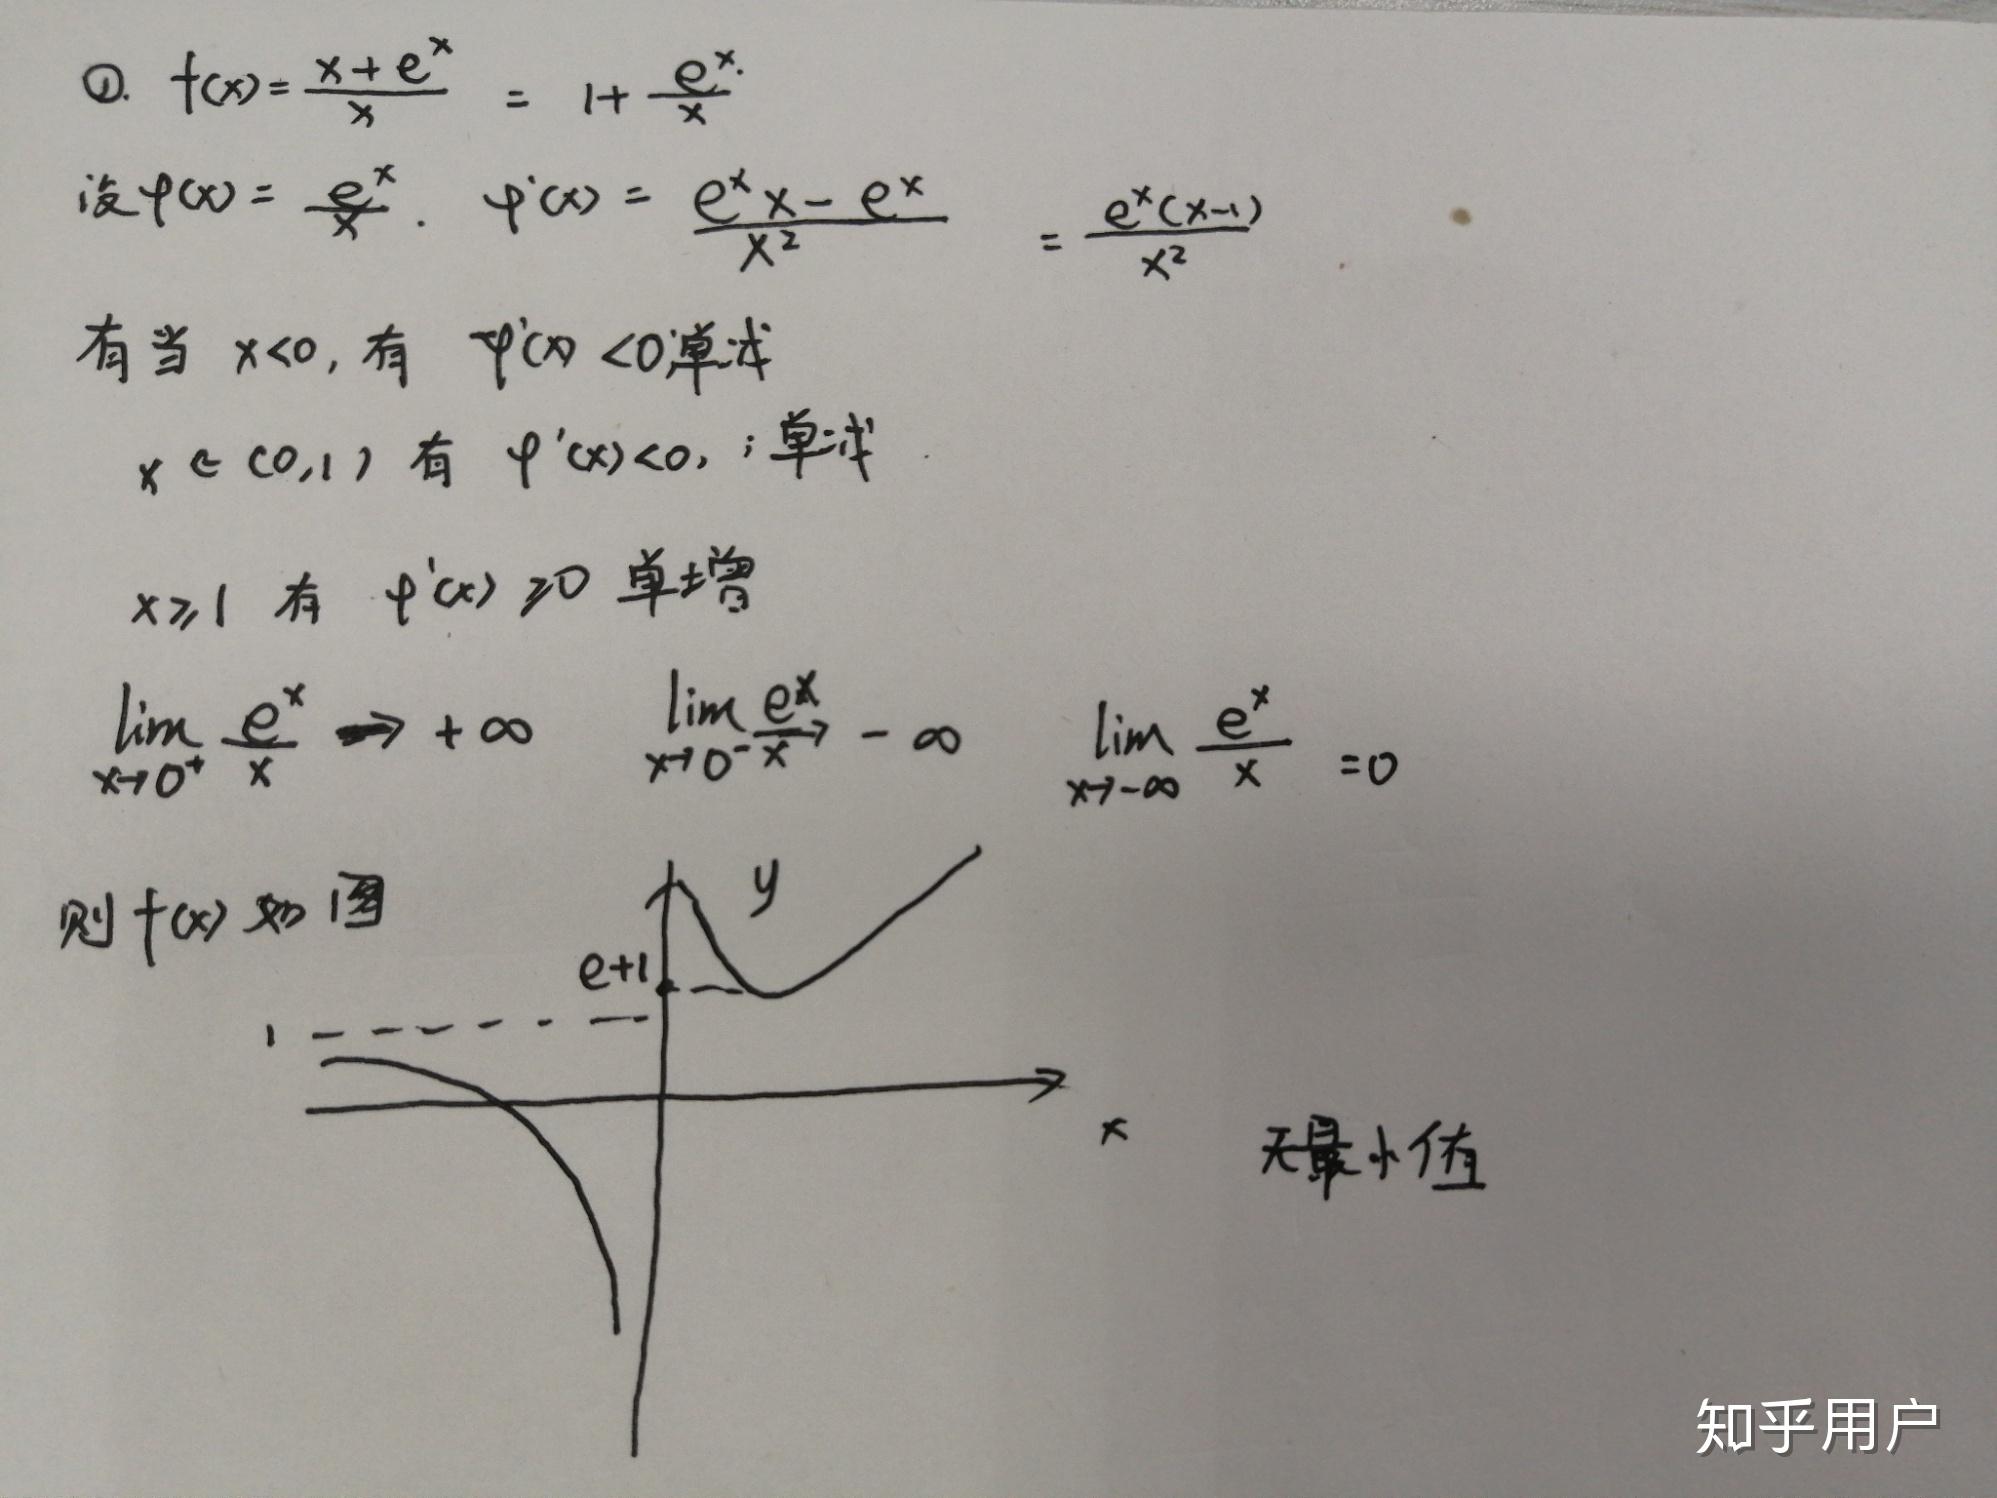 ①. f(x)= (x+e^x)/x = 1+ e^x/x.
设φ(x)= e^x/x. φ'(x)= (e^x x-e^x)/x² = e^x(x-1)/x²
有当 x<0, 有 φ'(x)<0;单减
x∈(0,1) 有 φ'(x)<0, ;单减
x≥1 有 φ'(x)≥0 单增
lim x→0⁺ e^x/x → +∞ lim x→0⁻ e^x/x → -∞ lim x→-∞ e^x/x =0
则f(x)如图
y
e+1
1
x
无最小值
知乎用户